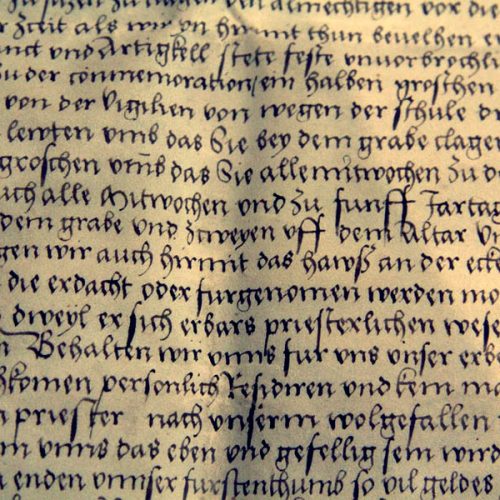 almechtigen vor die
Zeit als wir yn hirmit thun bevelhen
und Artigkell stete feste unvorbrochli
zu der commemoration ein halben groschen
von der Vigilien von wegen der schule
lewten umb das Sie bey dem grabe clagen
groschen umb das Sie alle mitwochen zu
alle Mitwochen und zu funff Jartag
dem grabe und zweyen uff dem Altar
gen wir auch hirmit das hawß an der ecke
die erdacht oder furgenomen werden mo
dweyl er sich erbars priesterlichen wese
Behalten wir unns fur uns unser erbe
hkomen personlich Residiren und kein
priester nach unserm wolgefallen
unns das eben und gefellig sein wird
enden unnser furstenthumb so vil geldes